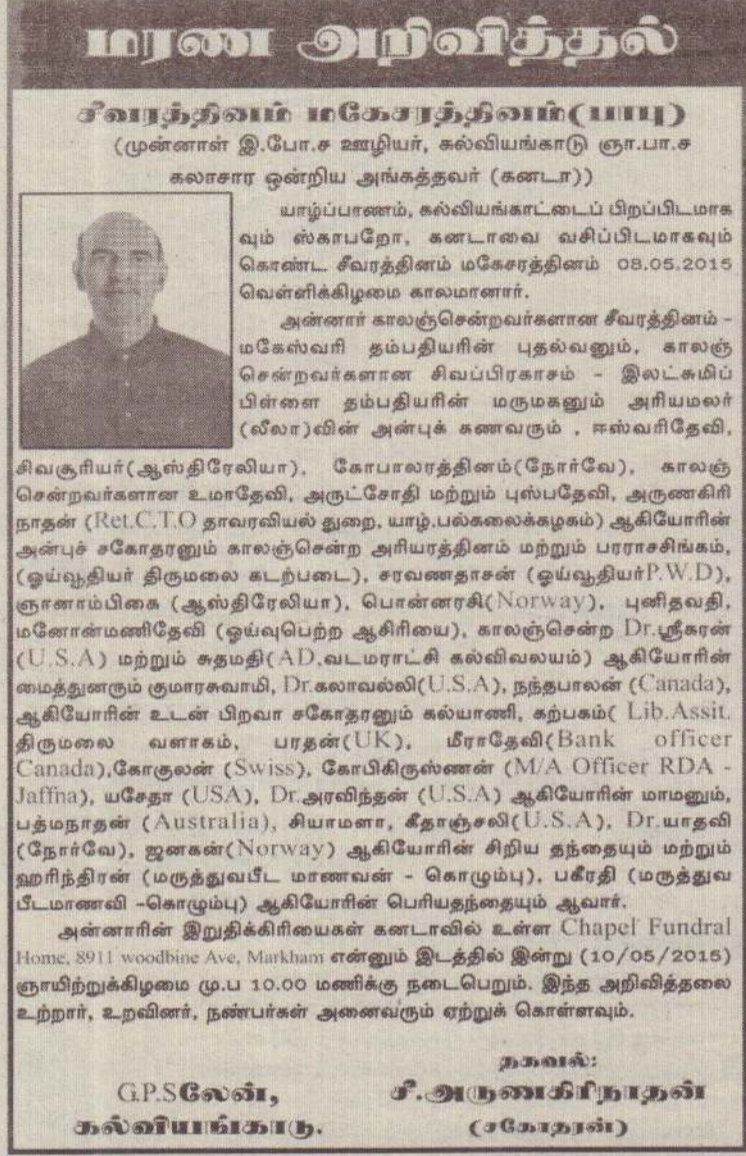 மரண அறிவித்தல்
சீவரத்தினம் மகேசரத்தினம்(பாபு)
(முன்னாள் இ.போ.ச ஊழியர், கல்வியங்காடு ஞா.பா.ச
கலாசார ஒன்றிய அங்கத்தவர் (கனடா))
யாழ்ப்பாணம், கல்வியங்காட்டைப் பிறப்பிடமாக
வும் ஸ்காபறோ, கனடாவை வசிப்பிடமாகவும்
கொண்ட சீவரத்தினம் மகேசரத்தினம் 08.05.2015
வெள்ளிக்கிழமை காலமானார்.
அன்னார் காலஞ்சென்றவர்களான சீவரத்தினம் -
மகேஸ்வரி தம்பதியரின் புதல்வனும், காலஞ்
சென்றவர்களான சிவப்பிரகாசம் - இலட்சுமிப்
பிள்ளை தம்பதியரின் மருமகனும் அரியமலர்
(லீலா)வின் அன்புக் கணவரும் , ஈஸ்வரிதேவி,
சிவசூரியர்(ஆஸ்திரேலியா), கோபாலரத்தினம்(நோர்வே), காலஞ்
சென்றவர்களான உமாதேவி, அருட்சோதி மற்றும் புஸ்பதேவி, அருணகிரி
நாதன் (Ret.C.T.O தாவரவியல் துறை, யாழ்.பல்கலைக்கழகம்) ஆகியோரின்
அன்புச் சகோதரனும் காலஞ்சென்ற அரியரத்தினம் மற்றும் பரராசசிங்கம்,
(ஓய்வூதியர் திருமலை கடற்படை), சரவணதாசன் (ஓய்வூதியர்P.W.D),
ஞானாம்பிகை (ஆஸ்திரேலியா), பொன்னரசி(Norway), புனிதவதி,
மனோன்மணிதேவி (ஓய்வுபெற்ற ஆசிரியை), காலஞ்சென்ற Dr.ஸ்ரீகரன்
(U.S.A) மற்றும் சுதமதி(AD.வடமராட்சி கல்விவலயம்) ஆகியோரின்
மைத்துனரும் குமாரசுவாமி, Dr.கலாவல்லி(U.S.A), நந்தபாலன் (Canada),
ஆகியோரின் உடன் பிறவா சகோதரனும் கல்யாணி, கற்பகம்( Lib.Assit.
திருமலை வளாகம், பரதன்(UK), மீராதேவி(Bank officer
Canada),கோகுலன் (Swiss), கோபிகிருஸ்ணன் (M/A Officer RDA -
Jaffna), யசேதா (USA), Dr.அரவிந்தன் (U.S.A) ஆகியோரின் மாமனும்,
பத்மநாதன் (Australia), சியாமளா, கீதாஞ்சலி(U.S.A), Dr.யாதவி
(நோர்வே), ஜனகன்(Norway) ஆகியோரின் சிறிய தந்தையும் மற்றும்
ஹரிந்திரன் (மருத்துவபீட மாணவன் - கொழும்பு), பகீரதி (மருத்துவ
பீடமாணவி -கொழும்பு) ஆகியோரின் பெரியதந்தையும் ஆவார்.
அன்னாரின் இறுதிக்கிரியைகள் கனடாவில் உள்ள Chapel Fundral
Home, 8911 woodbine Ave, Markham என்னும் இடத்தில் இன்று (10/05/2015)
ஞாயிற்றுக்கிழமை மு.ப 10.00 மணிக்கு நடைபெறும். இந்த அறிவித்தலை
உற்றார், உறவினர், நண்பர்கள் அனைவரும் ஏற்றுக் கொள்ளவும்.
தகவல்:
G.P.Sலேன், சீ.அருணகிரிநாதன்
கல்வியங்காடு. (சகோதரன்)